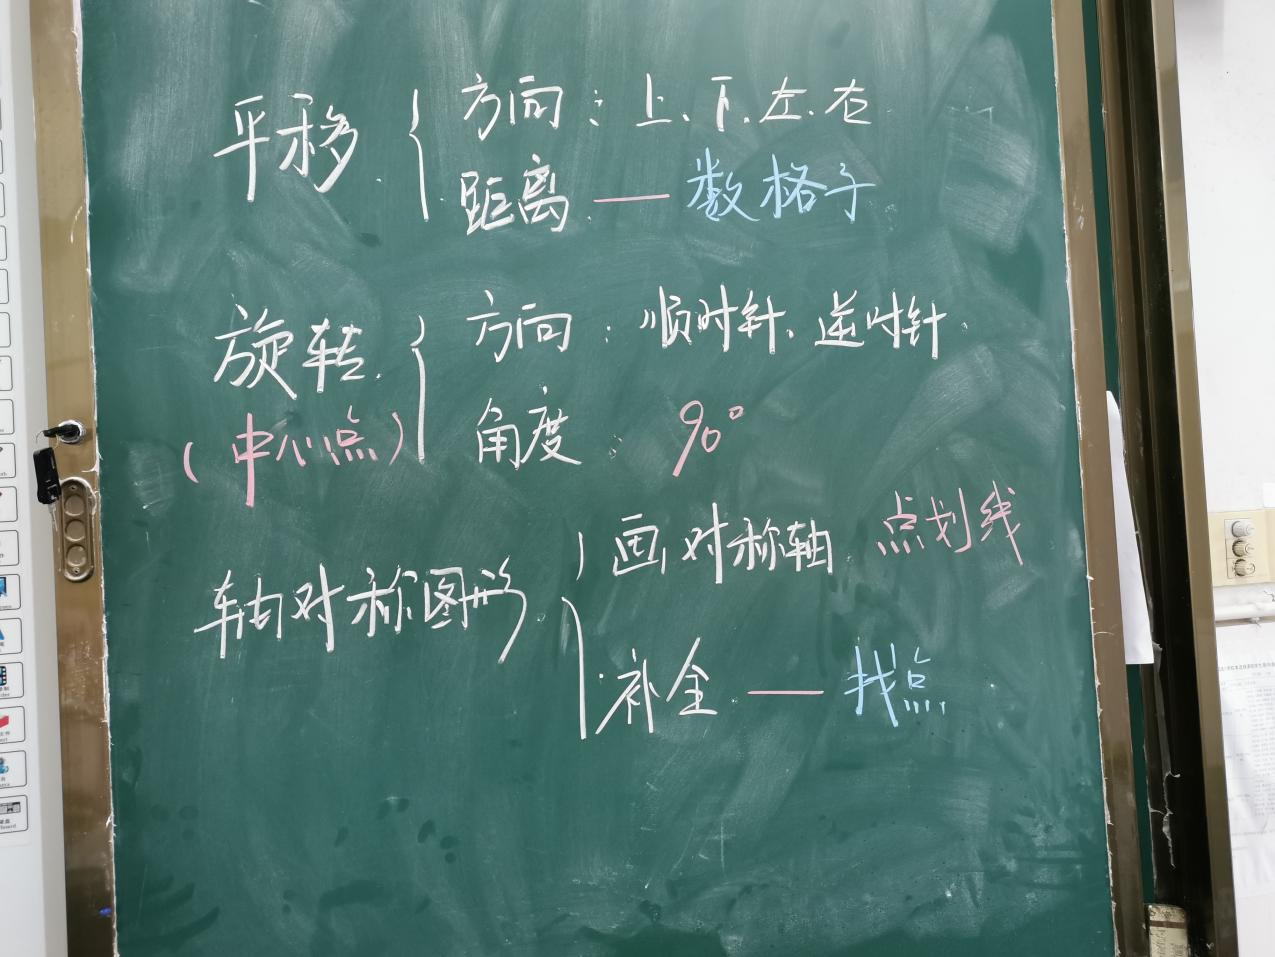 平移 方向：上、下、左、右
距离 — 数格子
旋转 方向：顺时针、逆时针.
（中心点） 角度： 90°
轴对称图形 画对称轴 点划线
补全 — 找点